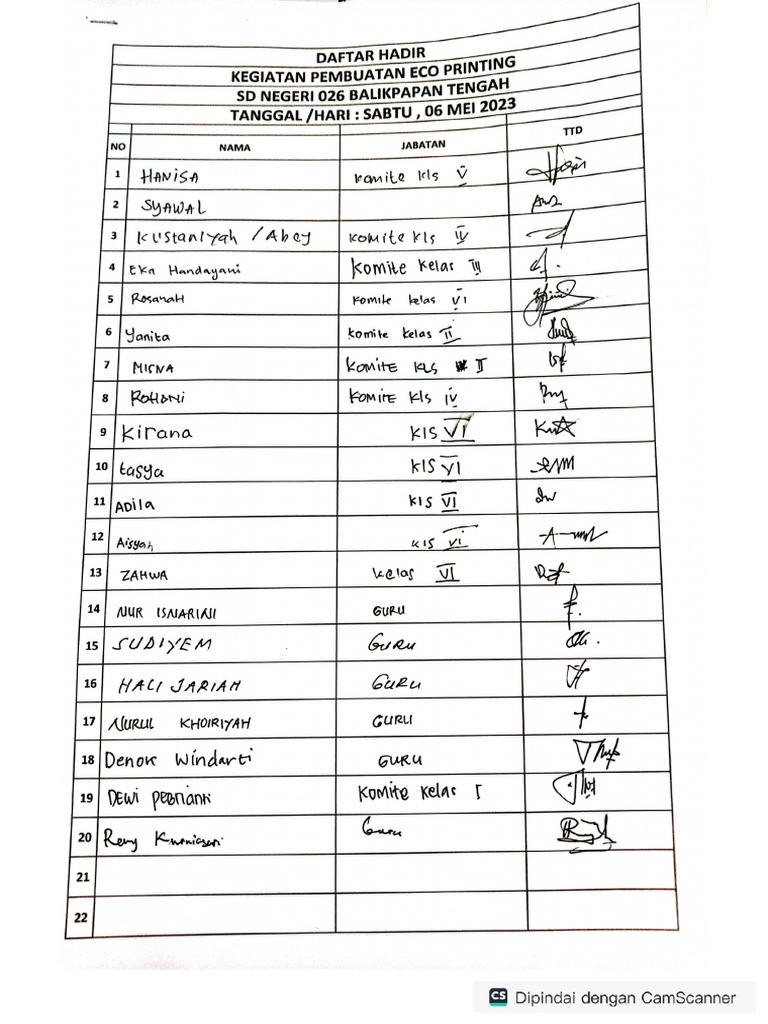 DAFTAR HADIR
KEGIATAN PEMBUATAN ECO PRINTING
SD NEGERI 026 BALIKPAPAN TENGAH
TANGGAL /HARI : SABTU , 06 MEI 2023
NO NAMA JABATAN TTD
1 HANISA komite kls V
2 SYAWAL
3 Kustaniyah / Abey komite kls IV
4 Eka Handayani Komite Kelas III
5 Rosanah Komite kelas VI
6 Yanita Komite Kelas II
7 MISNA KOMITE KLS II
8 ROHANI KOMITE Kls IV
9 Kirana KIS VI
10 tasya KIS VI
11 ADila KIS VI
12 Aisyah KIS VI
13 ZAHWA Kelas VI
14 NUR ISNARINI GURU
15 SUDIYEM GURU
16 HALI JARIAH GURU
17 NURUL KHOIRIYAH GURU
18 Denok Windarti GURU
19 DEWI Komite Kelas I
20 Reny Kurniasari Guru
21
22
CS Dipindai dengan CamScanner